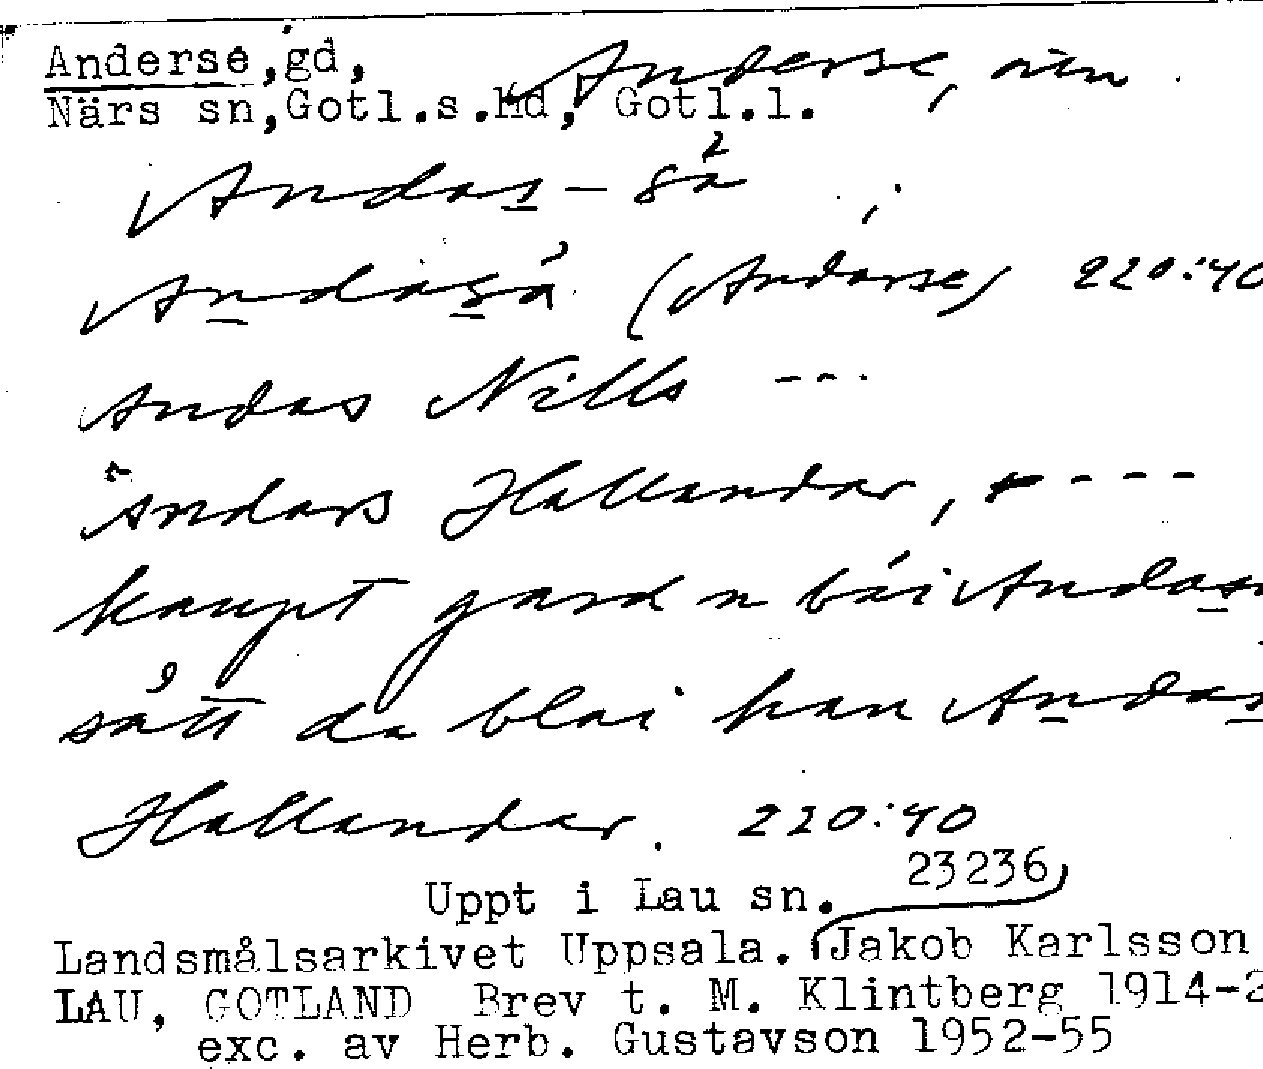 Anderse, gd, Anderse, nen
Närs sn, Gotl.s.hd, Gotl.l.
Andas-så
Andaså (Anderse) 220:40
Andas Nills ---
Andars Hallandar, ----
kaupt gard n bái Andas
sått da blai han Andas
Hallandar. 220:40
23236
Uppt i Lau sn.
Landsmålsarkivet Uppsala. Jakob Karlsson
LAU, GOTLAND Brev t. M. Klintberg 1914-2
exc. av Herb. Gustavson 1952-55